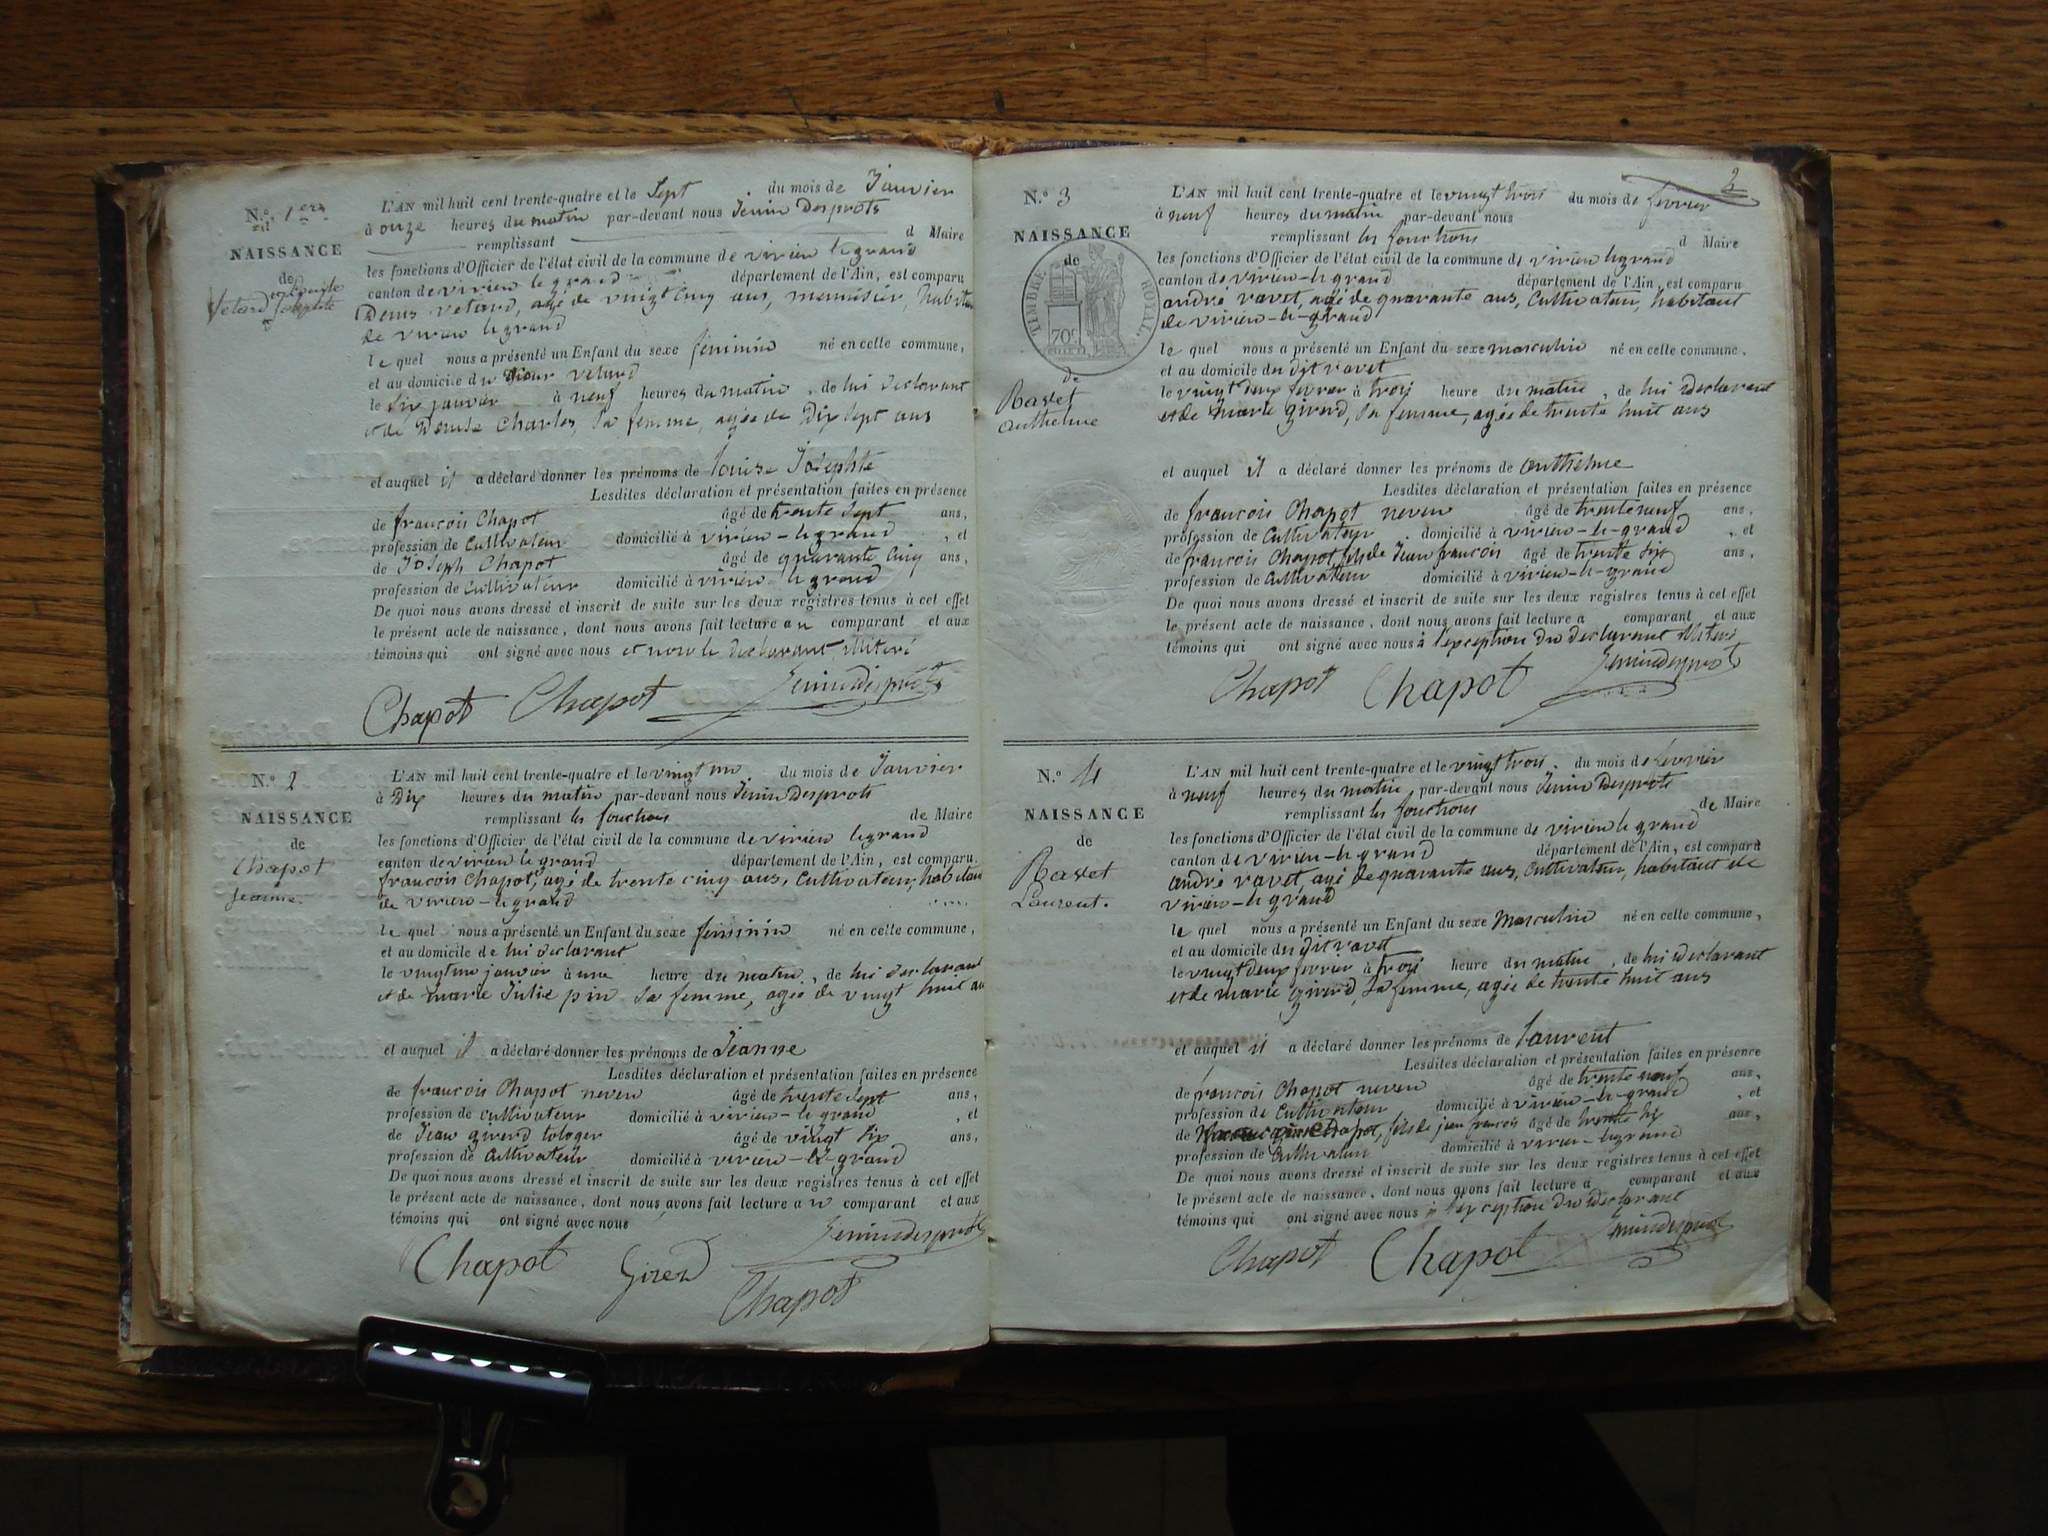 N.º 1er
NAISSANCE
de
Vetard Louise
Josephte
L'AN mil huit cent trente-quatre et le Sept du mois de Janvier
à onze heures du matin par-devant nous Jenin Desprots
remplissant d Maire
les fonctions d'Officier de l'état civil de la commune de virieu legrand
canton de virieu le grand département de l'Ain, est comparu
Denis vetard, agé de vingt cinq ans, menuisier, habitant
de virieu legrand
le quel nous a présenté un Enfant du sexe féminin né en celle commune,
et au domicile du vetard
le Six janvier à neuf heures du matin, de lui declarant
et de Charles, sa femme, agée de Dix Sept ans
et auquel il a déclaré donner les prénoms de louise Josephte
Lesdites déclaration et présentation faites en présence
de françois Chapot âgé de trente Sept ans,
profession de Cultivateur domicilié à virieu-le grand, et
de Joseph Chapot âgé de quarante Cinq ans,
profession de Cultivateur domicilié à virieu le grand
De quoi nous avons dressé et inscrit de suite sur les deux registres tenus à cet effet
le présent acte de naissance, dont nous avons fait lecture au comparant et aux
témoins qui ont signé avec nous et non le declarant illiteré
Chapot Chapot Jenindesprots
N.º 2
NAISSANCE
de
Chapot
Jeanne
L'AN mil huit cent trente-quatre et le vingt un du mois de Janvier
à Dix heures du matin par-devant nous Jenin Desprots
remplissant les fonctions de Maire
les fonctions d'Officier de l'état civil de la commune de virieu legrand
canton de virieu le grand département de l'Ain, est comparu
francois Chapot, agé de trente cinq ans, Cultivateur, habitant
de virieu-legrand
le quel nous a présenté un Enfant du sexe féminin né en celle commune,
et au domicile de lui declarant
le vingt un janvier à une heure du matin, de lui declarant
et de marie Julie pin sa femme, agée de vingt huit ans
et auquel il a déclaré donner les prénoms de Jeanne
Lesdites déclaration et présentation faites en présence
de francois Chapot neveu âgé de trente Sept ans,
profession de cultivateur domicilié à virieu-le grand, et
de Jean girerd tologer âgé de vingt six ans,
profession de Cultivateur domicilié à virieu-le-grand
De quoi nous avons dressé et inscrit de suite sur les deux registres tenus à cet effet
le présent acte de naissance, dont nous avons fait lecture au comparant et aux
témoins qui ont signé avec nous
Jenindesprots
Chapot Girerd Chapot
2
N.º 3
NAISSANCE
de
TIMBRE ROYAL
70c
de
Ravet
anthelme
L'AN mil huit cent trente-quatre et le vingt trois du mois de février
à neuf heures du matin par-devant nous
remplissant les fonctions d Maire
les fonctions d'Officier de l'état civil de la commune de virieu legrand
canton de virieu-le-grand département de l'Ain, est comparu
andré ravet, agé de quarante ans, Cultivateur, habitant
de virieu-le-grand
le quel nous a présenté un Enfant du sexe masculin né en celle commune,
et au domicile du dit ravet
le vingt deux fevrier à trois heure du matin, de lui declarant
et de marie girerd, sa femme, agée de trente huit ans
et auquel il a déclaré donner les prénoms de anthelme
Lesdites déclaration et présentation faites en présence
de francois Chapot neveu âgé de trente neuf ans,
profession de Cultivateur domicilié à virieu-le-grand, et
de françois Chapot, fils de Jean francois âgé de trente six ans,
profession de Cultivateur domicilié à virieu-le-grand
De quoi nous avons dressé et inscrit de suite sur les deux registres tenus à cet effet
le présent acte de naissance, dont nous avons fait lecture a comparant et aux
témoins qui ont signé avec nous à l'exception du declarant illiteré
Chapot Chapot Jenindesprots
N.º 4
NAISSANCE
de
Ravet
Laurent.
L'AN mil huit cent trente-quatre et le vingt trois du mois de fevrier
à neuf heures du matin par-devant nous Jenin Desprots
remplissant les fonctions de Maire
les fonctions d'Officier de l'état civil de la commune de virieu le grand
canton de virieu-le grand département de l'Ain, est comparu
andré ravet, agé de quarante ans, Cultivateur, habitant de
virieu-le grand
le quel nous a présenté un Enfant du sexe masculin né en celle commune,
et au domicile du dit ravet
le vingt deux fevrier à trois heure du matin, de lui declarant
et de marie girerd, sa femme, agée de trente huit ans
et auquel il a déclaré donner les prénoms de laurent
Lesdites déclaration et présentation faites en présence
de francois Chapot neveu âgé de trente neuf ans,
profession de Cultivateur domicilié à virieu-le-grand, et
de Chapot, fils de jean françois âgé de trente six ans,
profession de Cultivateur domicilié à virieu-legrand
De quoi nous avons dressé et inscrit de suite sur les deux registres tenus à cet effet
le présent acte de naissance, dont nous avons fait lecture a comparant et aux
témoins qui ont signé avec nous à l'exception du declarant
Chapot Chapot Jenindesprots